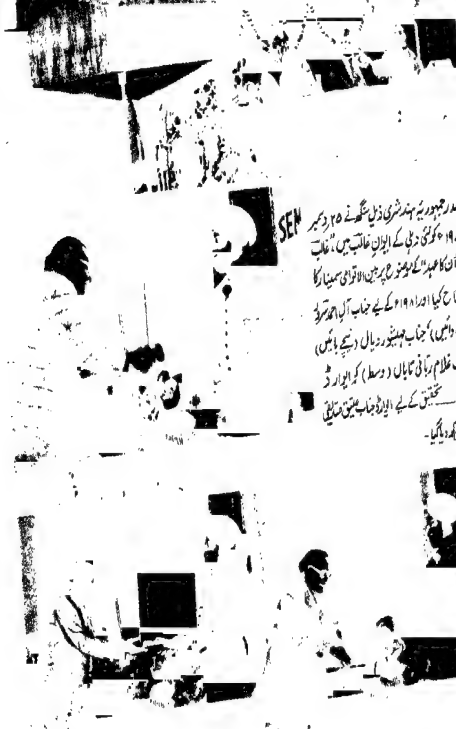 SEM
صدر جمہوریہ ہند شری ذیل سنگھ نے ۲۵ دسمبر
۱۹ء کو نئی دہلی کے ایوان غالب میں، "غالب
ان کا عہد" کے موضوع پر بین الاقوامی سمینار کا
اح کیا اور ۱۹۸۱ء کے لیے جناب آل احمد سرور
دائیں) جناب مہیشور دیال (نیچے بائیں)
غلام ربانی تاباں (وسط) کو ایوارڈ
تحقیق کے لیے ایوارڈ جناب عتیق صدیقی
دیا گیا۔